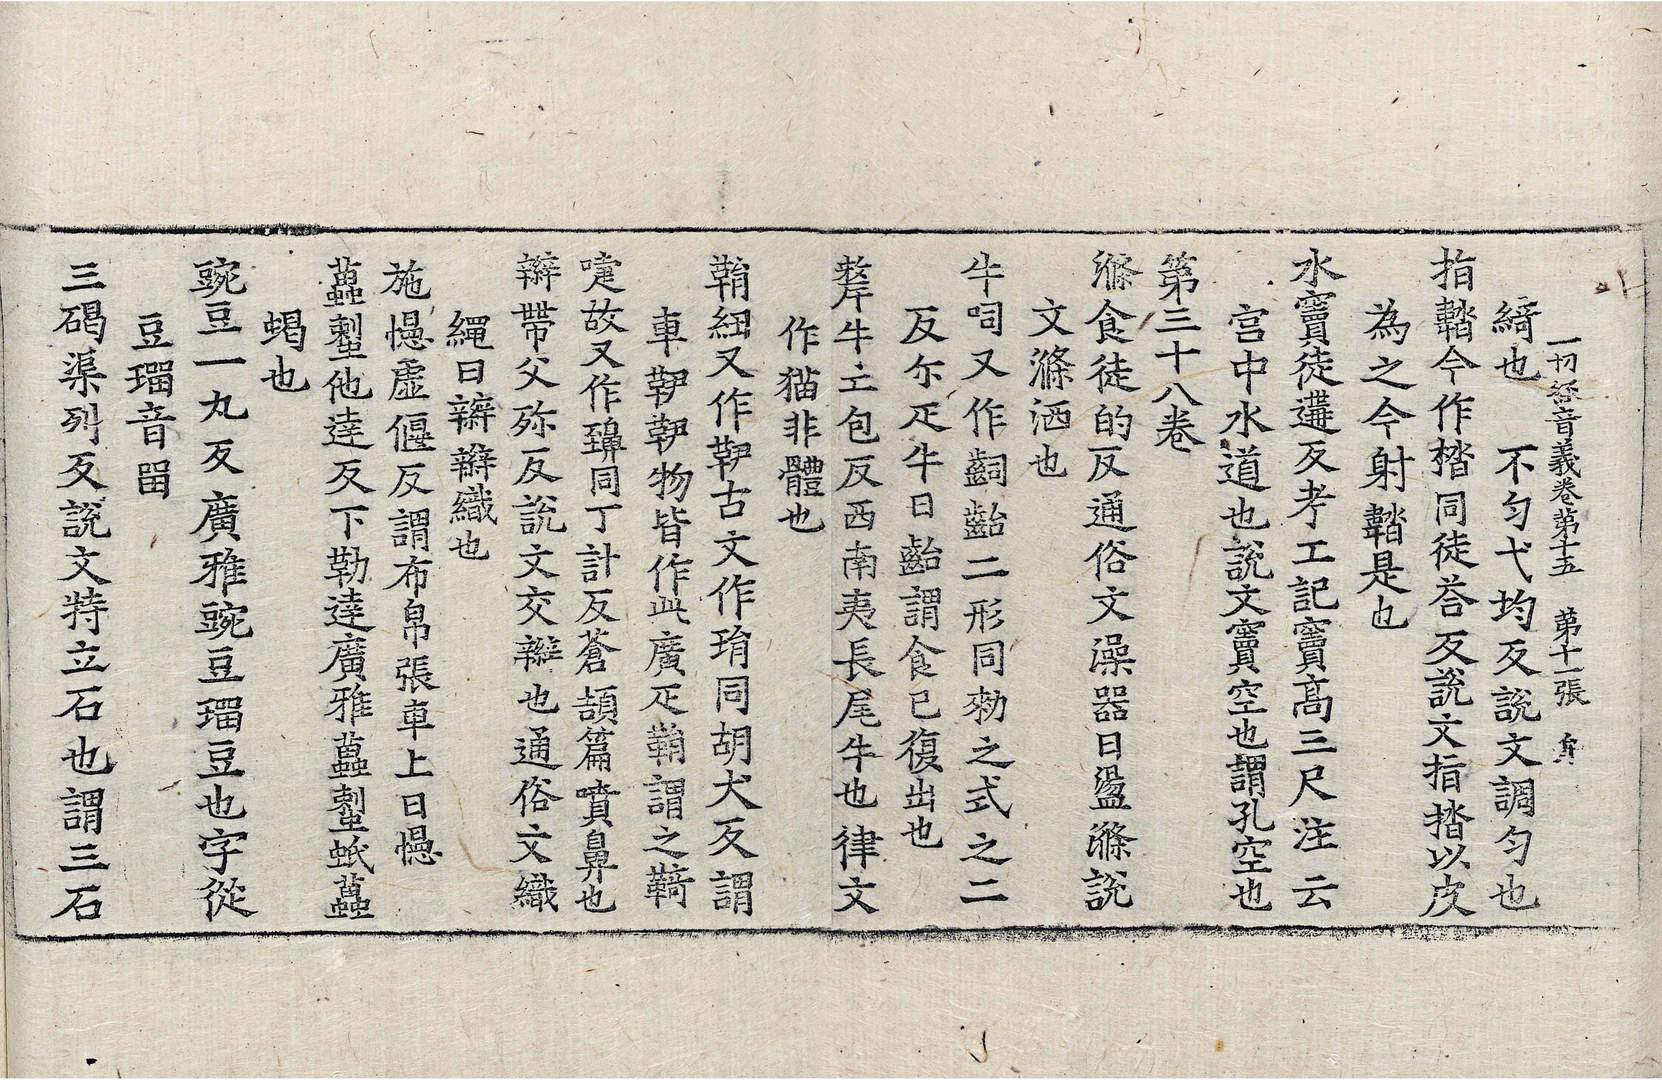 一切経音義卷第十五 第十一張 身
綺也 不匀弋均反說文調匀也
指韜今作㧺同徒荅反說文指揩以皮
為之今射韜是也
水竇徒遘反考工記竇高三尺注云
宮中水道也說文竇空也謂孔空也
第三十八卷
滌食徒的反通俗文澡器曰盪滌說
文滌洒也
牛呞又作齝齝二形同勑之式之二
反尒疋牛曰齝謂食已復出也
犛牛亡包反西南夷長尾牛也律文
作猫非體也
鞙紐又作䩙古文作琄同胡犬反謂
車䩙䩙物皆作此廣疋鞙謂之䩭
嚏故又作䶍同丁計反蒼頡篇噴鼻也
辮帶父弥反說文交辮也通俗文織
繩曰辮辮織也
施幰虛偃反謂布帛張車上曰幰
蠆䗖他達反下勒達廣雅蠆䗖蚔蠆
蝎也
豌豆一丸反廣雅豌豆䝁豆也字從
豆䝁音留
三碣渠列反說文特立石也謂三石